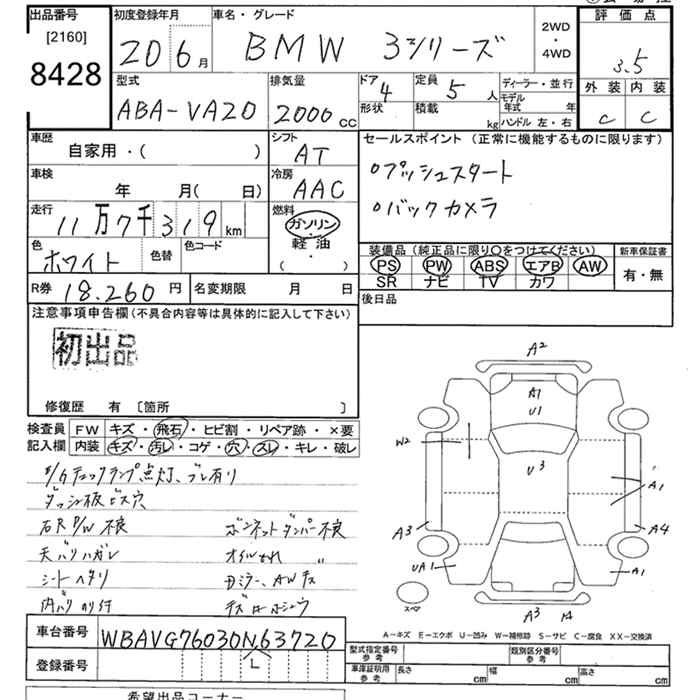 出品番号
[2160]
8428
初度登録年月
20 6月
車名・グレード
BMW 3シリーズ
2WD
・
4WD
評価点
3.5
外装 内装
C C
型式
ABA-VA20
排気量
2000 CC
ドア 4
形状
定員 5 人
積載 kg
ディーラー・並行
モデル年式 年
ハンドル 左・右
車歴
自家用・( )
シフト
AT
車検
年 月( 日)
冷房
AAC
走行
11万7千319 km
燃料
ガソリン
・
軽油
・
( )
色
ホワイト
色替
色コード
R券 18.260 円
名変期限 月 日
セールスポイント (正常に機能するものに限ります)
○プッシュスタート
○バックカメラ
装備品 (純正品に限り○をつけてください)
新車保証書
PS PW ABS エアB AW
SR ナビ TV カワ
有・無
後日品
注意事項申告欄(不具合内容等は具体的に記入して下さい)
初出品
修復歴 有 〔箇所 〕
検査員記入欄
FW キズ・飛石・ヒビ割・リペア跡・×要
内装 キズ・汚レ・コゲ・穴・スレ・キレ・破レ
チェックランプ点灯、ブレ有り
ダッシュ板ビス穴
右R P/W 不良 ボンネットダンパー不良
天バリハガレ オイルもれ
シートヘタリ
内バリのり付
A2
A1
U1
W2
U3
A1
A3
A4
UA1
A1
A3
スペア
A-キズ E-エクボ U-凹み W-補修跡 S-サビ C-腐食 XX-交換済
車台番号 WBAVG76030N,63720
L
登録番号
型式指定番号 参考
類別区分番号 参考
車庫証明用 参考 長さ cm 幅 cm 高さ cm
希望出品コーナー